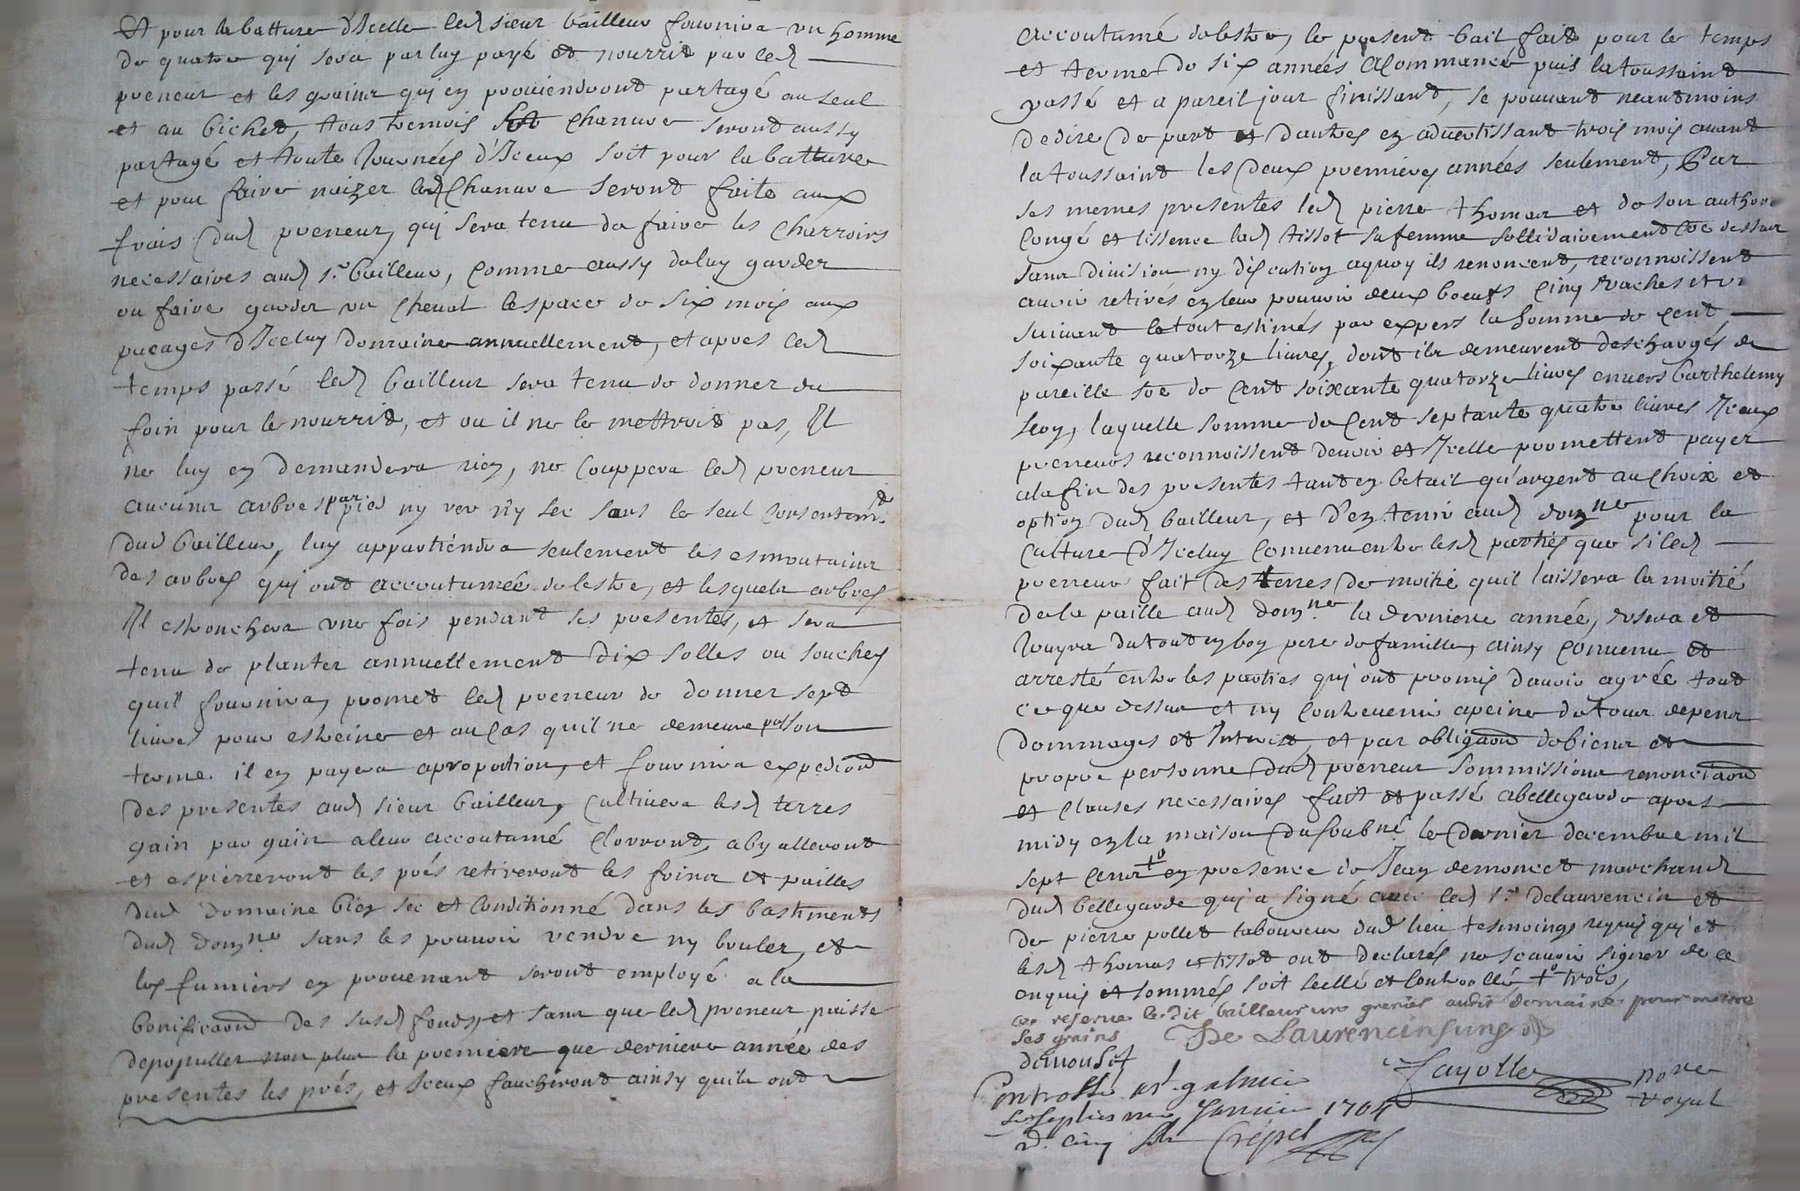 Et pour la batture d'Icelle led sieur bailleur fournira un homme
de quatre qui sera par luy payé et nourrit par led
preneur et les grains qui en proviendront partagé au seul
et au bichet, tous tremois et chanure seront aussy
partagé et toute Journées d'Iceux soit pour la batture
et pour faire naizer led Chanure seront faite aux
frais dud preneur, qui sera tenu de faire les charroirs
necessaires aud sr bailleur, comme aussy de luy garder
ou faire garder un cheval lespace de six mois aux
pacages d'Iceluy Domaine annuellement, et apres led
temps passé led bailleur sera tenu de donner du
foin pour le nourrir, et ou il ne le mettroit pas, Il
ne luy en demandera rien, ne couppera led preneur
aucuns arbres par pied ny ver ny sec sans le seul consentemt
dud bailleur, luy appartiendra seulement les esmoutains
des arbres qui ont accoutumée de lestre, et lesquels arbres
Il esbrunchera une fois pendant ses presentes, et sera
tenu de planter annuellement dix solles ou souches
quil fournira, promet led preneur de donner sept
livres pour estreine et au cas quil ne demeure pas son
terme il en payera a proportion, et fournira expediond
des presentes aud sieur bailleur, cultivera lesd terres
gain par gain a leur accoutumé clorront, abyalleront
et espierreront les prés retireront les foins et pailles
dud Domaine bien sec et Conditionné dans les bastiments
dud domne sans les pouvoir vendre ny bruler, et
les fumiers en prouenant seront employé a la
bonificaond des susd fonds, et sans que led preneur puisse
depopuller non plus la premiere que derniere année des
presentes les prés, et Iceux faucheront ainsy quils ont
accoutumé de lestre, le present bail fait pour le temps
et terme de six années a Commancer puis la toussaint
passé et a pareil jour finissant, se pouvant neantmoins
dedire de part et d'autres en advertissant trois mois avant
la toussaint les deux premieres années seulement, Par
ses memes presentes led pierre thomas et de son authoré
Congé et lissence lad tissot sa femme sollidairement Coe dessus
sans division ny discution a quoy ils renoncent, reconnoissent
avoir retirés en leur pouvoir deux boeufs cinq vaches et un
suivant le tout estimés par expers la somme de cent
soixante quatorze livres, dont ils demeurent deschargés de
pareille soe de cent soixante quatorze livres envers barthelemy
, laquelle somme de Cent septante quatre livres Iceux
preneurs reconnoissent devoir et Icelle promettent payer
a la fin des presentes tant en betail qu'argent au choix et
option dud bailleur, et d'en tenir aud domne pour la
culture d'Iceluy Convenu entre lesd parties que si led
preneur fait des terres de moitié quil laissera la moitié
de la paille aud domne la derniere année, usera et
Jouyra du tout en bon pere de famille, ainsy convenu et
arresté entre les parties qui ont promis d'avoir agréé tout
ce que dessus et ny contrevenir a peine de tous depens
dommages et Interest, et par obligaond de biens et
propre personne dud preneur sommissions renonciaond
et clauses necessaires fait et passé a bellegarde apres
midy en la maison du soubné le dernier decembre mil
sept Cens + en presence de Jean demoncet marchand
dud bellegarde qui a signé avec led sr delaurencin et
de pierre pollet laboureur dud lieu tesmoings requis qui et
lesd thomas et tissot ont declarés ne scavoir signer de ce
enquis et sommés soit scellé et controollé + trois,
ce reserve ledit bailleur un grenier audit domaine pour mettre
ses grains De Laurencin
demoncet
Controllé a st galmier
Le septieme Janvier 1704
R. cinq s Crépet
Fayolle
Nore
Royal